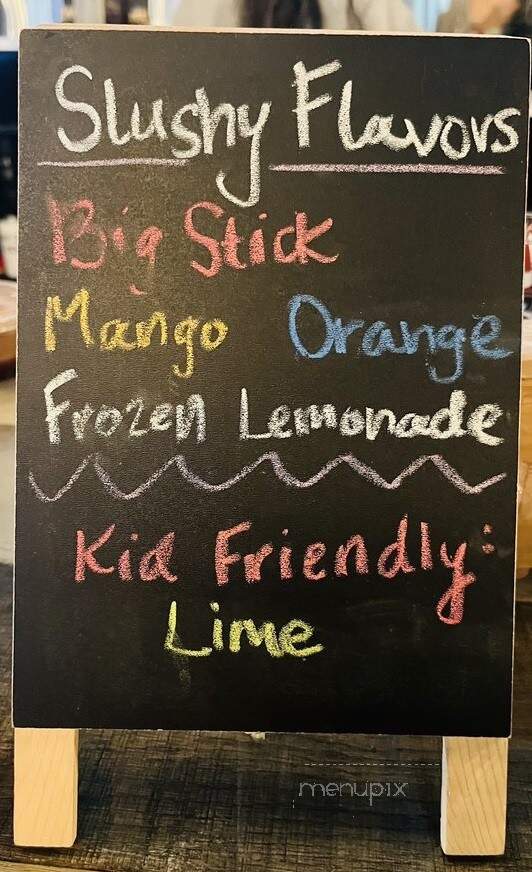 Slushy Flavors
Big Stick
Mango Orange
Frozen Lemonade
Kid Friendly:
Lime
menupix